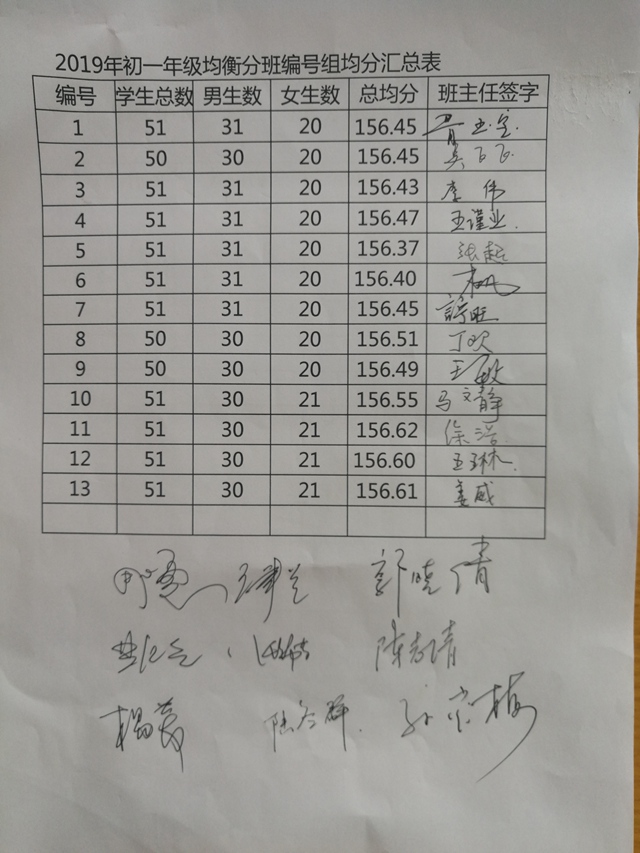 2019年初一年级均衡分班编号组均分汇总表
编号 学生总数 男生数 女生数 总均分 班主任签字
1 51 31 20 156.45
2 50 30 20 156.45 吴飞飞
3 51 31 20 156.43 李伟
4 51 31 20 156.47 王谨业
5 51 31 20 156.37 张起
6 51 31 20 156.40
7 51 31 20 156.45
8 50 30 20 156.51 丁欢
9 50 30 20 156.49 王敏
10 51 30 21 156.55 马文静
11 51 30 21 156.62 徐浩
12 51 30 21 156.60 王琳
13 51 30 21 156.61 姜威
郭晓倩
陈志清
杨孙宗梅